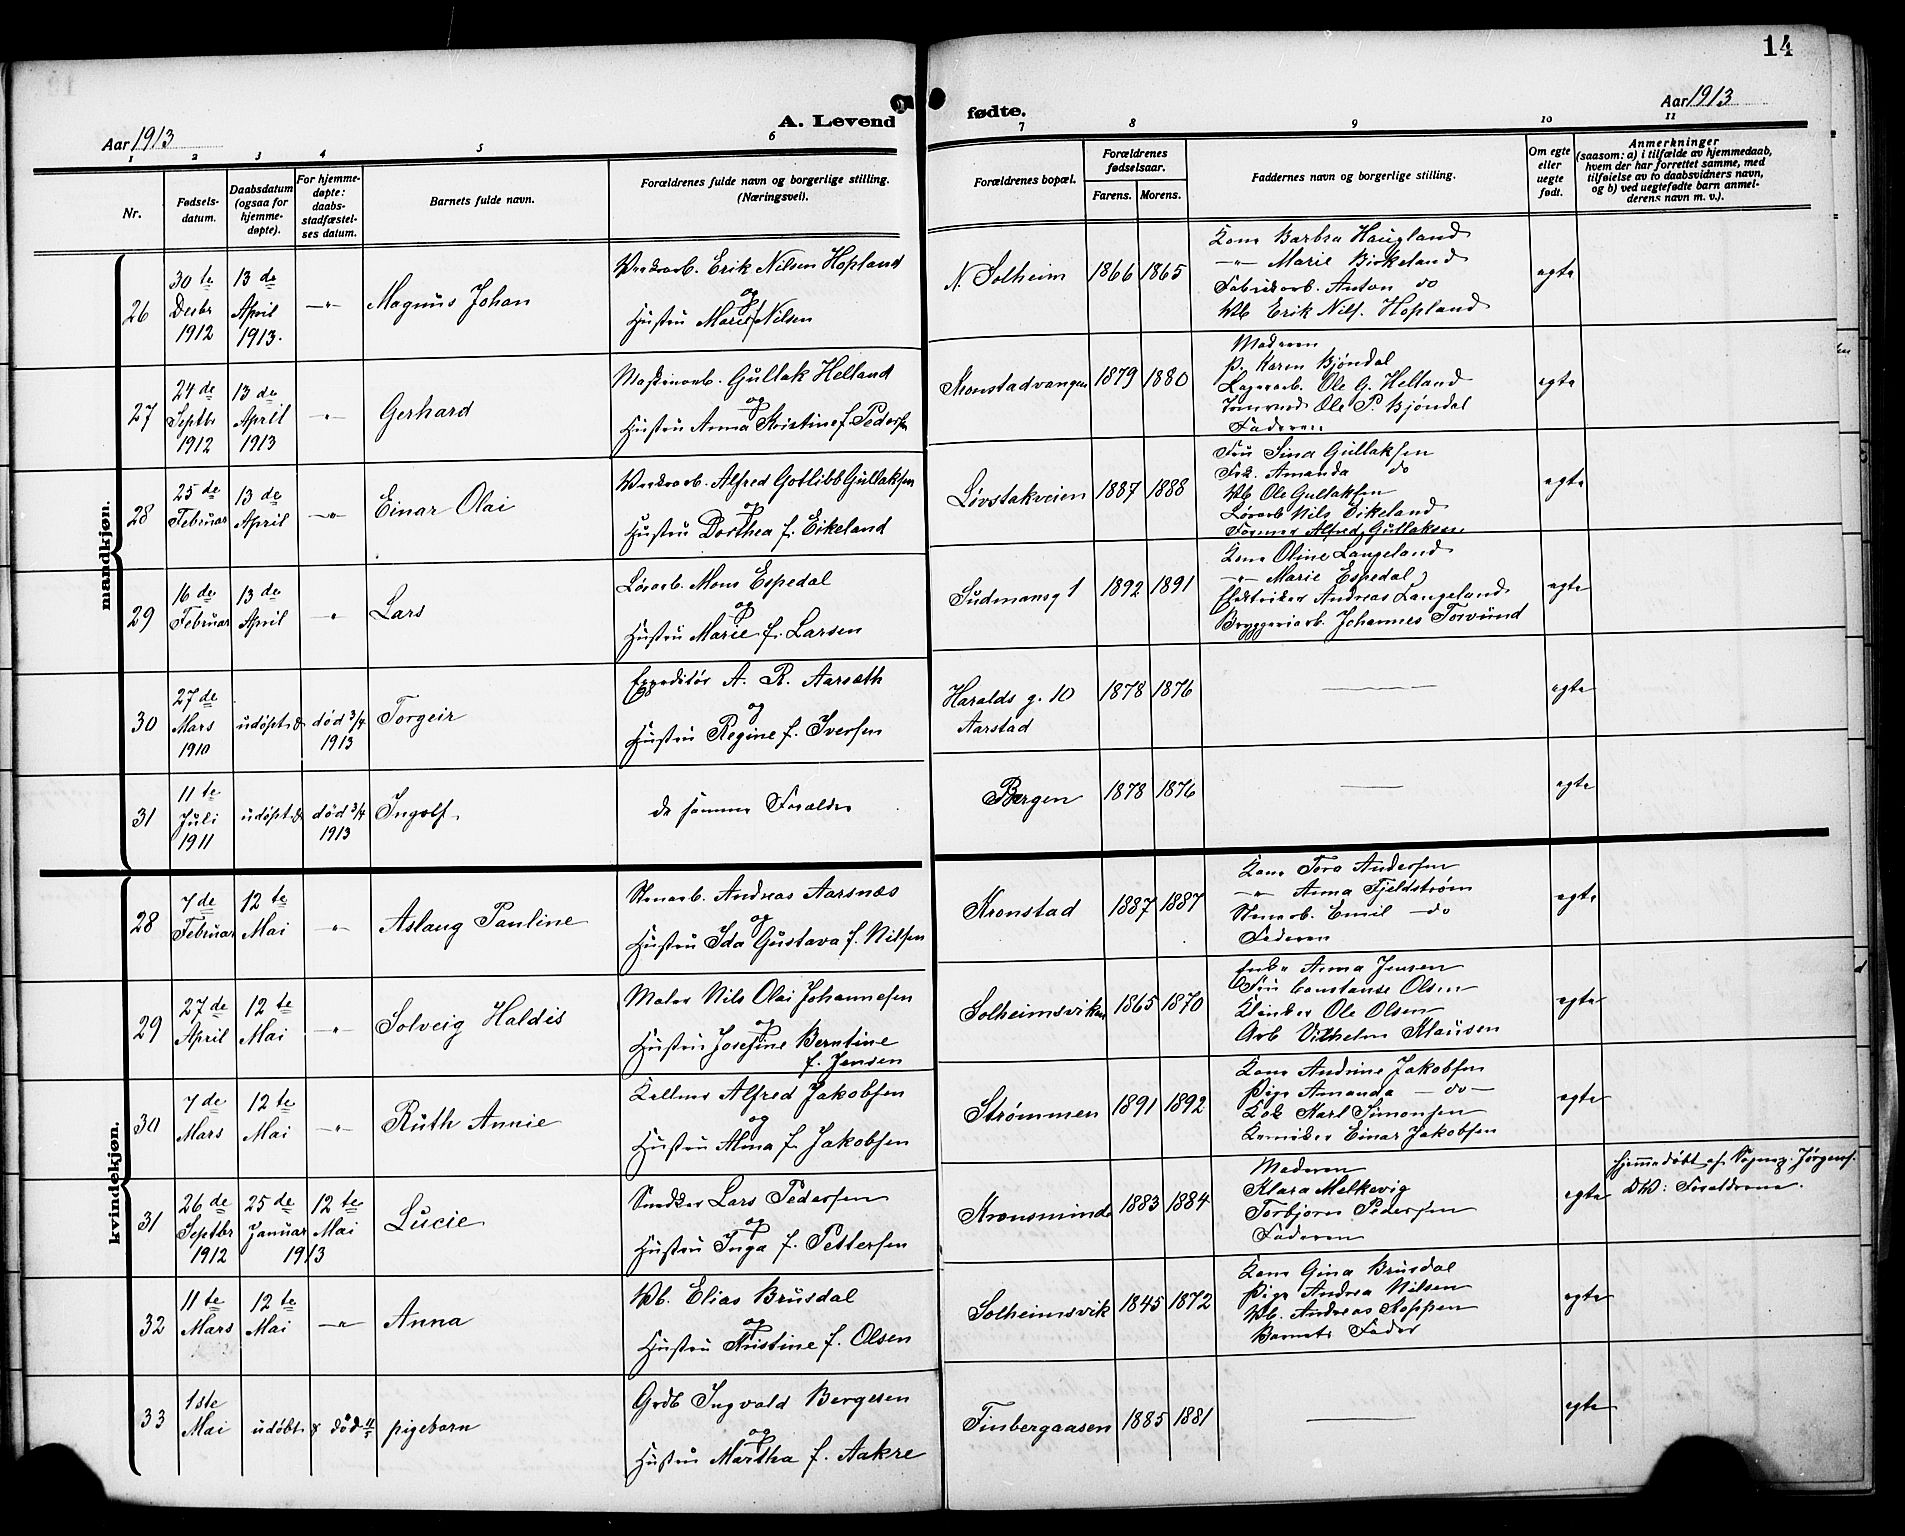 14
Aar 1913
A. Levendfødte.
Aar 1913
1 2 3 4 5 6 7 8 9 10 11
Nr.
Fødselsdatum.
Daabsdatum (ogsaa for hjemmedøpte).
For hjemmedøpte: daabsstadfæstelses datum.
Barnets fulde navn.
Forældrenes fulde navn og borgerlige stilling. (Næringsvei).
Forældrenes bopæl.
Forældrenes fødselsaar.
Farens. Morens.
Faddernes navn og borgerlige stilling.
Om egte eller uegte født.
Anmerkninger
(saasom: a) i tilfælde av hjemmedaab, hvem der har forrettet samme, med tilføielse av to daabsvidners navn, og b) ved uegtefødte barn anmelderens navn m. v.).
mandkjøn.
26
30te Desbr 1912
13de April 1913.
-"-
Magnus Johan
Verksarb. Erik Nilsen Hopland
og
Hustru Marie f. Nilsen
N. Solheim
1866 1865
Kone Barbra Haugland
-"- Marie Birkeland
Fabrikarb. Anton do
Vb Erik Nils. Hopland
egte
27
24de Septbr 1912
13de April 1913
-"-
Gerhard
Maskinarb. Gullak Helland
og
Hustru Anna Kristine f. Pedersen
Kronstadvangen
1879 1880
Moderen
P. Karen Bjøndal
Lagerarb. Ole G. Helland
Ole P. Bjøndal
Faderen
egte
28
25de Februar
13de April
-"-
Einar Olai
Verksarb. Alfred Gotlibb Gullaksen
og
Hustru Dorthea f. Eikeland
Løvstakveien
1887 1888
Fru Sina Gullaksen
Frk. Amanda do
Vb Ole Gullaksen
Løsarb Nils Eikeland
Former Alfred Gullaksen
egte
29
16de Februar
13de April
-"-
Lars
Løsarb. Mons Espedal
og
Hustru Marie f. Larsen
Sudmansg 1
1892 1891
Kone Oline Langeland
-"- Marie Espedal
Elektriker Andreas Langeland
Bryggeriarb. Johannes Torvund
egte
30
27de Mars 1910
udøpt & død 3/4 1913
Torgeir
Expeditør A. R. Aarsæth
og
Hustru Regine f. Iversen
Haralds g. 10
Aarstad
1878 1876
egte
31
11te Juli 1911
udøpt & død 3/4 1913
Ingolf.
de samme Forældre
Bergen
1878 1876
egte
kvindekjøn.
28
7de Februar
12te Mai
-"-
Aslaug Pauline
Stenarb. Andreas Aarsnæs
og
Hustru Ida Gustava f. Nilsen
Kronstad
1887 1887
Kone Tora Andersen
-"- Anna Fjeldstrøm
Stenarb. Emil - do
Faderen
egte
29
27de April
12te Mai
-"-
Solveig Haldis
Maler Nils Olai Johannesen
og
Hustru Josefine Berntine
f. Jensen
Solheimsviken
1865 1870
Enke Anna Jensen
Fru Constanse Olsen
Klinker Ole Olsen
Arb Vilhelm Klausen
egte
30
7de Mars
12te Mai
-"-
Ruth Annie
Kellner Alfred Jakobsen
og
Hustru Alma f. Jakobsen
Strømmen
1891 1892
Kone Andrine Jakobsen
Pige Amanda - do -
Kok Karl Simonsen
Kemiker Einar Jakobsen
egte
31
26de Septbr 1912
25de Januar 1913
12te Mai
Lucie
Snedker Lars Pedersen
og
Hustru Inga f. Pettersen
Kronsminde
1883 1884
Moderen
Klara Melkevig
Torbjørn Pedersen
Faderen
egte
Hjemmedøbt af Sognep. Jørgens.
DV: Forældrene.
32
11te Mars
12te Mai
-"-
Anna
Vb. Elias Brusdal
og
Hustru Kristine f. Olsen
Solheimsvik
1845 1872
Kone Gina Brusdal
Pige Andrea Nilsen
Vb. Andreas Koppen
Barnets Fader
egte
33
1ste Mai
udøbt & død 11/5
pigebarn
Grdb Ingvald Bergesen
og
Hustru Martha f. Aakre
Finbergaasen
1885 1881
egte